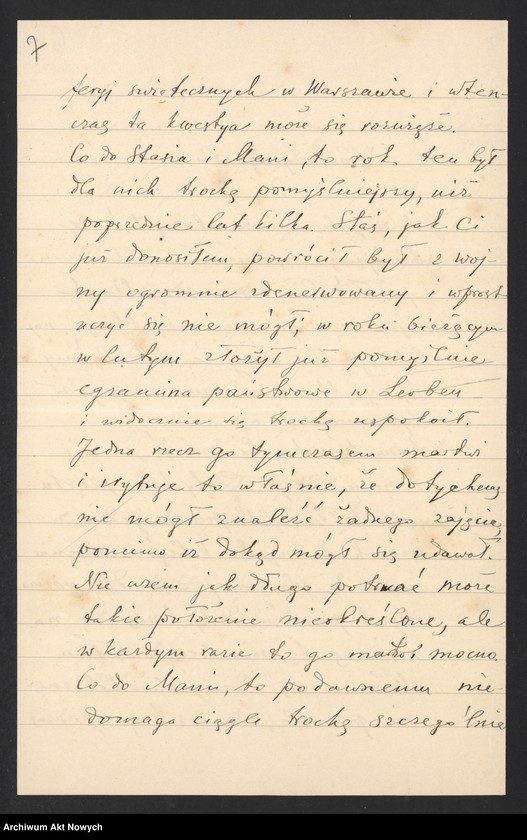 7
feryj świętecznych w Warszawie i wten-
czas ta kwestya może się rozwiąże.
Co do Stasia i Mani, to rok ten był
dla nich trochę pomyślniejszy, niż
poprzednie lat kilka. Staś, jak Ci
już donosiłem, powrócił był z woj-
ny ogromnie zdenerwowany i wprost
uczyć się nie mógł; w roku bieżącym
w lutym złożył już pomyślnie
egzamina państwowe w Leoben
i widocznie się trochę uspokoił.
Jedna rzecz go tymczasem martwi
i irytuje to właśnie, że dotychczas
nie mógł znaleść żadnego zajęcia,
pomimo iż dokąd mógł się udawał.
Nie wiem jak długo potrwać może
takie położenie nieokreślone, ale
w kazdym razie to go mocno.
Co do Mani, to podawnemu nie-
domaga ciągle trochę szczególnie
Archiwum Akt Nowych